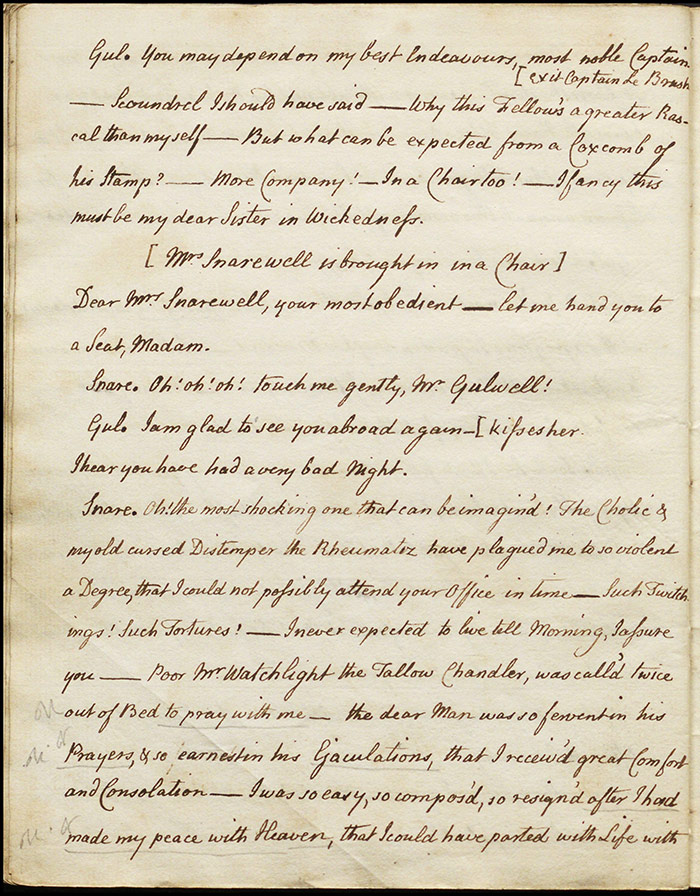 Gul. You may depend on my best Endeavours, most noble Captain.
[exit Captain Le Brush
— Scoundrel I should have said — Why this Fellow's a greater Ras-
cal than myself — But what can be expected from a Coxcomb of
his Stamp? — More Company! — In a Chair too! — I fancy this
must be my dear Sister in Wickedneſs.
[ Mrs Snarewell is brought in in a Chair ]
Dear Mrs Snarewell, your most obedient — let me hand you to
a Seat, Madam.
Snare. Oh! oh! oh! touch me gently, Mr Gulwell!
Gul. I am glad to see you abroad again — [kiſses her.
I hear you have had a very bad Night.
Snare. Oh! the most shocking one that can be imagin'd! The Cholic &
my old cursed Distemper the Rheumatiz have plagued me to so violent
a Degree, that I could not poſsibly attend your Office in time — Such Twitch
ings! Such Tortures! — I never expected to live till Morning, I aſsure
you — Poor Mr Watchlight the Tallow Chandler, was call'd twice
out of Bed to pray with me — the dear Man was so fervent in his
Prayers, & so earnest in his Ejaculations, that I receiv'd great Comfort
and Consolation — I was so easy, so compos'd, so resign'd after I had
made my peace with Heaven, that I could have parted with Life with